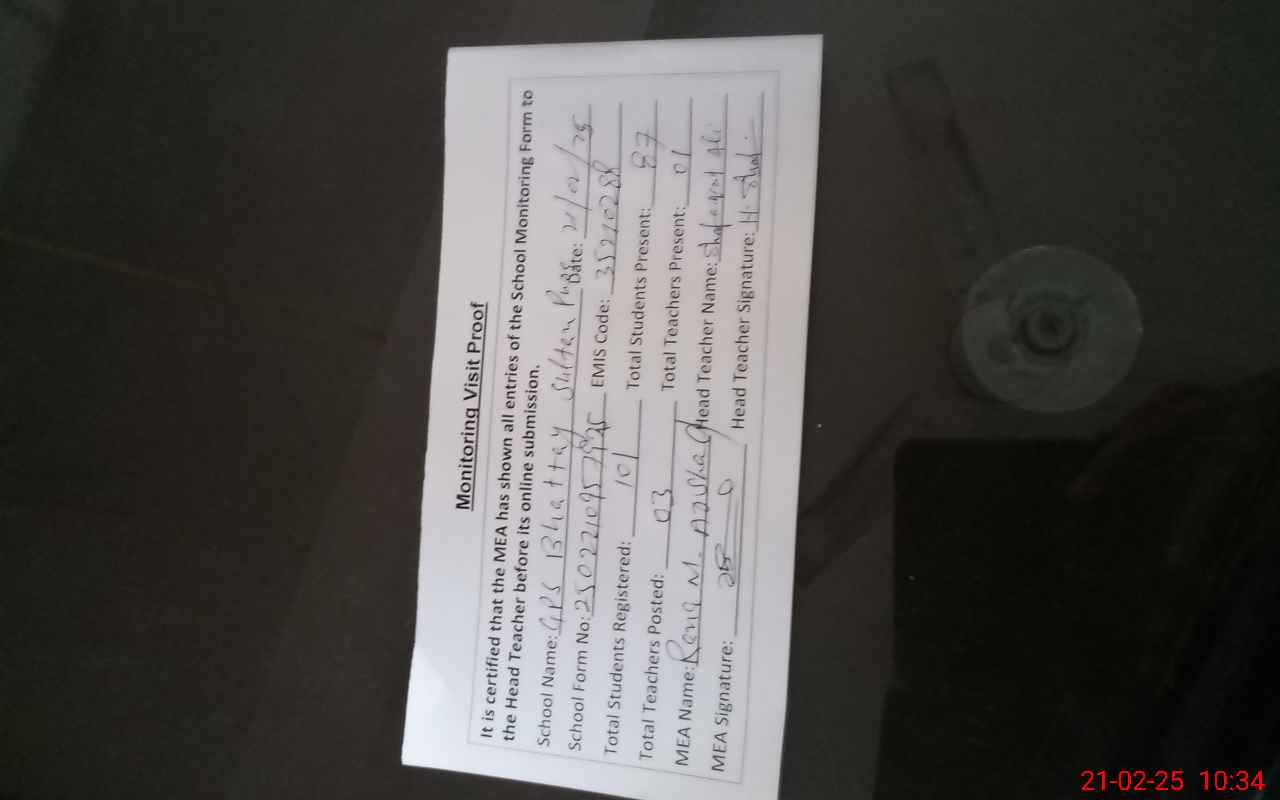 Monitoring Visit Proof
It is certified that the MEA has shown all entries of the School Monitoring Form to
the Head Teacher before its online submission.
School Name: GPS Bhattay Sultan Pura
School Form No: Date: 21/02/25
EMIS Code: 35210288
Total Students Registered: 101 Total Students Present: 87
Total Teachers Posted: 03 Total Teachers Present: 01
MEA Name: Rana M. Head Teacher Name: Shafaqat Ali
MEA Signature: Head Teacher Signature:
21-02-25 10:34